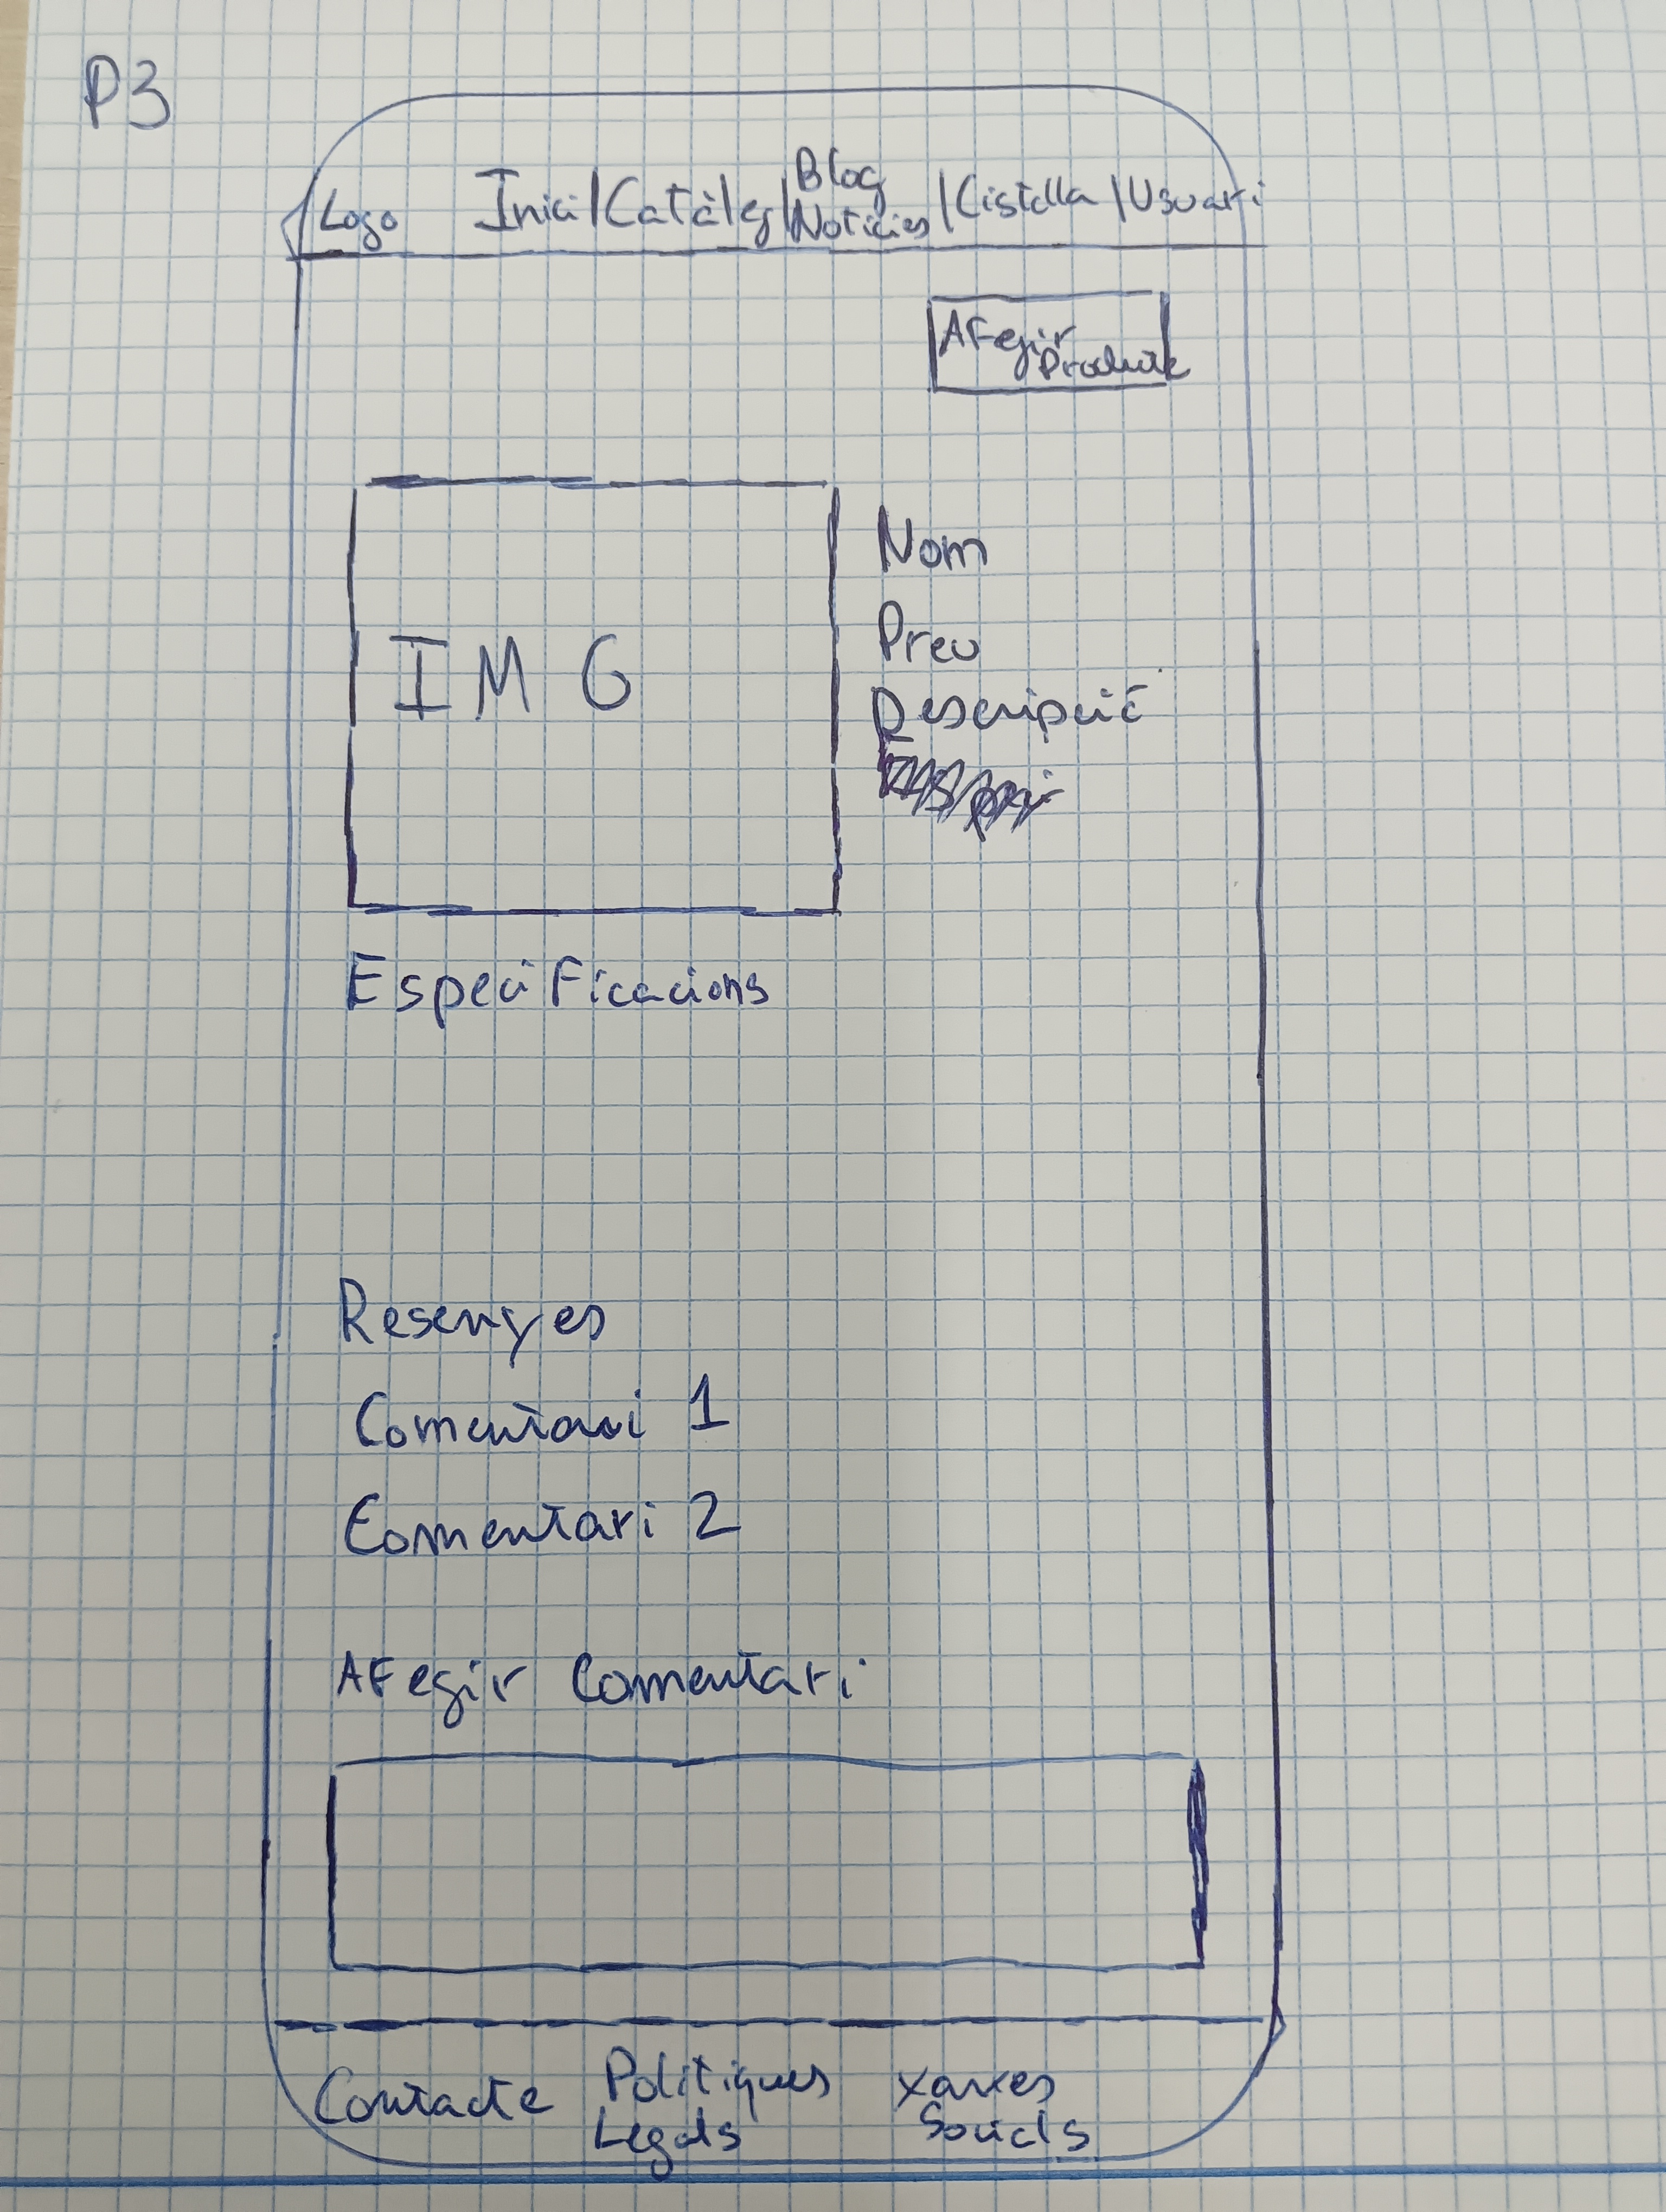 P3
Logo Inici/Catàleg/Blog Noticies/Cistella/Usuari
Afegir
Producte
IMG
Nom
Preu
Descripció
Especificacions
Resenyes
Comentari 1
Comentari 2
Afegir Comentari
Contacte Politiques Xarxes
Legals Socials